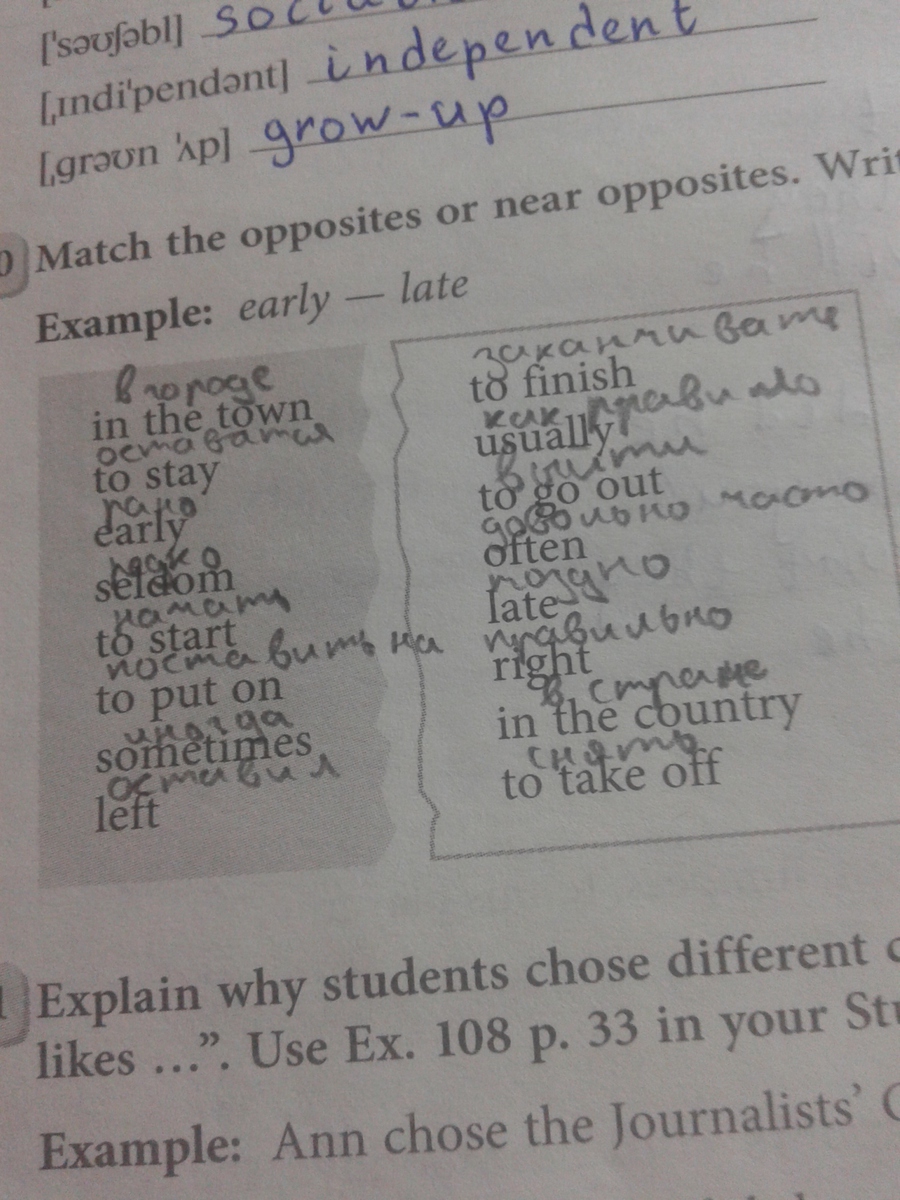 ['səʊʃəbl]
[ˌɪndi'pendənt] independent
[ˌgrəʊn 'ʌp] grow-up
Match the opposites or near opposites. Writ
Example: early — late
в городе
in the town
оставаться
to stay
рано
early
редко
seldom
начать
to start
поставить на
to put on
иногда
sometimes
оставил
left
заканчивать
to finish
как правило
usually
выйти
to go out
довольно часто
often
поздно
late
правильно
right
в стране
in the country
снять
to take off
Explain why students chose different
likes ...”. Use Ex. 108 p. 33 in your
Example: Ann chose the Journalists’